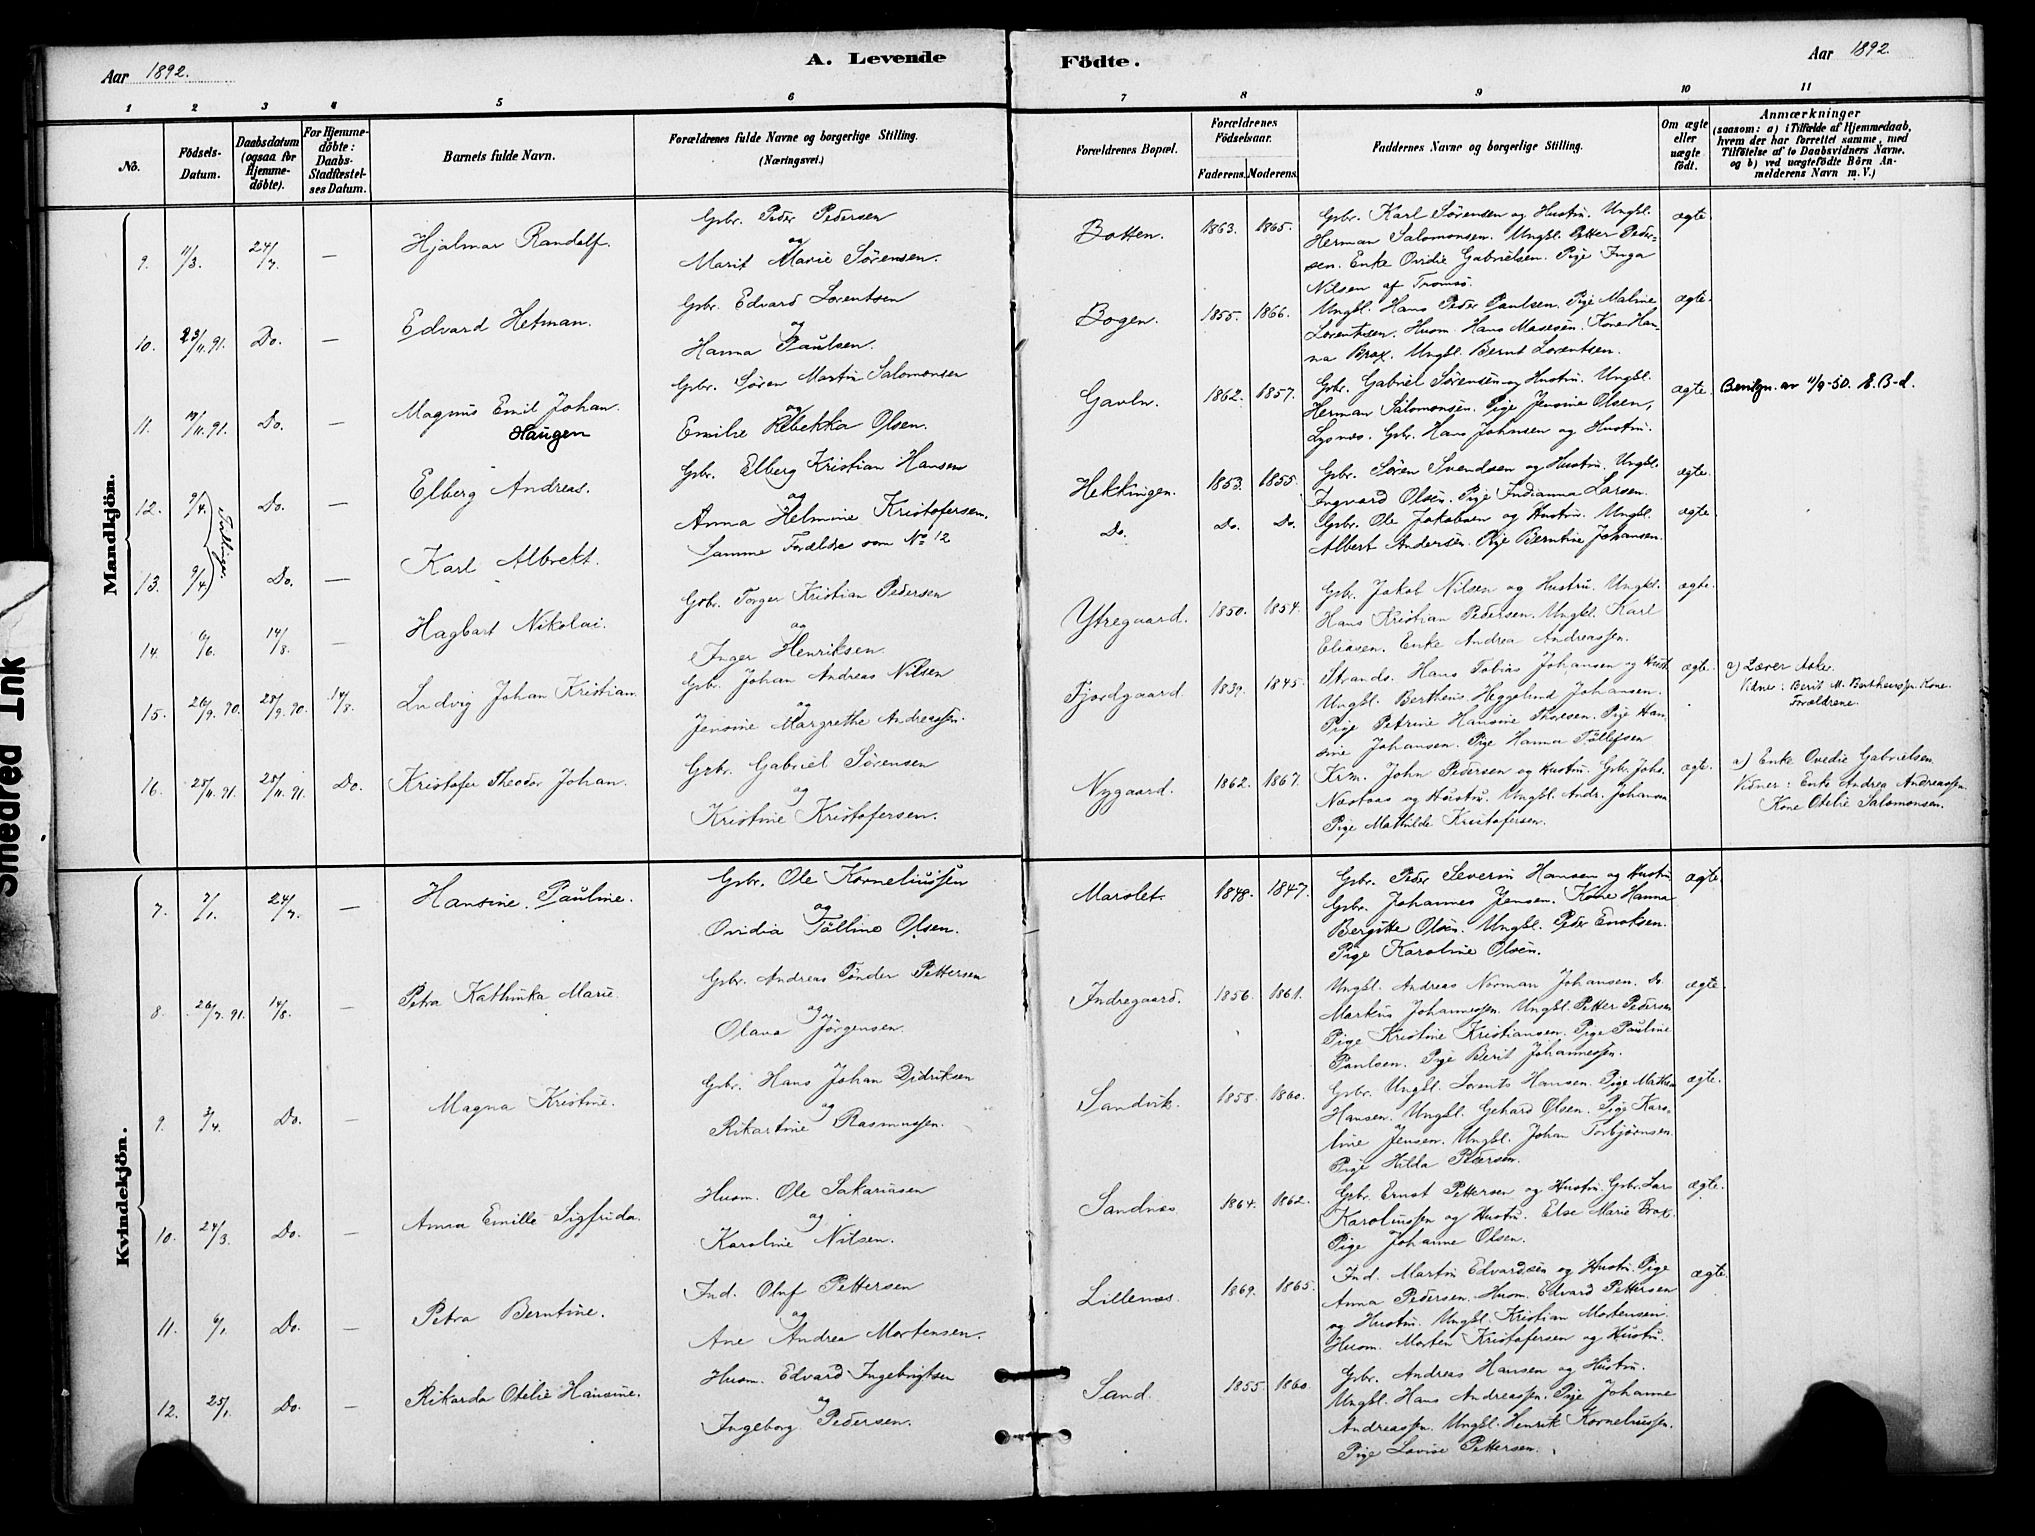 Aar 1892.
A. Levende Födte.
Aar 1892.
1 2 3 4 5 6 7 8 9 10 11
No.
Födsels-
Datum.
Daabsdatum
(ogsaa for
Hjemme-
döbte).
For Hjemme-
döbte:
Daabs-
Stadfæstel-
ses Datum.
Barnets fulde Navn.
Forældrenes fulde Navne og borgerlige Stilling.
(Næringsvei.)
Forældrenes Bopæl.
Forældrenes
Födselsaar.
Faderens.
Moderens.
Faddernes Navne og borgerlige Stilling.
Om ægte
eller
uægte
født.
Anmærkninger
(saasom: a) i Tilfælde af Hjemmedaab,
hvem der har forrettet samme, med
Tilföielse af to Daabsvidners Navne.
og b) ved uægtefödte Börn An-
melderens Navn m. V.)
Mandkjön.
9. 11/3. 24/7. — Hjalmar Randolf.
Gbr. Peder Pedersen
og
Marit Marie Sørensen.
Botten. 1863. 1865.
Gbr. Karl Sørensen og Hustru. Ungkl.
Herman Salomonsen. Ungkl. Petter Peder-
sen. Enke Ovidie Gabrielsen. Pige Inga
Nilsen af Tromsø.
ægte.
10. 23/11.91. Do. — Edvard Hetman.
Gbr. Edvard Lorentsen
og
Hanna Paulsen.
Bogen. 1855. 1866.
Ungkl. Hans Peder Paulsen. Pige Malene
Lorentsen. Husm. Hans Masesen. Kone Han-
na Brox. Ungkl. Bernt Lorentsen.
ægte.
11. 17/11.91. Do. — Magnus Emil Johan.
Haugen
Gbr. Søren Martin Salomonsen
og
Emilie Rebekka Olsen.
Gavln. 1862. 1857.
Gbr. Gabriel Sørensen og Hustru. Ungkl.
Herman Salomonsen. Pige Jensine Olsen,
Lysnes. Gbr. Hans Johnsen og Hustru.
ægte.
Bevilgn. av 11/9-50. E. B-d.
12. 9/4. Do. — Elberg Andreas.
Tvillinger.
Gbr. Elberg Kristian Hansen
og
Anna Helmine Kristofersen.
Hekkingen. 1853. 1855.
Gbr. Søren Svendsen og Hustru. Ungkl.
Ingvard Olsen. Pige Indianna Larsen.
ægte.
13. 9/4. Do. — Karl Albrekt.
Samme Forældre som No 12
Do. Do. Do.
Gbr. Ole Jakobsen og Hustru. Ungkl.
Albert Andersen. Pige Berntine Johansen.
ægte.
14. 6/6. 14/8. — Hagbart Nikolai.
Gbr. Torger Kristian Pedersen
og
Inger Henriksen.
Ytregaard. 1850. 1854.
Gbr. Jakob Nilsen og Hustru. Ungkl.
Hans Kristian Pedersen. Ungkl. Karl
Eliasen. Enke Andrea Andreassen.
ægte.
15. 26/9.90. 28/9.90. 14/8. Ludvig Johan Kristian.
Gbr. Johan Andreas Nilsen
og
Jensine Margrethe Andreassen.
Fjordgaard. 1839. 1845.
Strands. Hans Tobias Johansen og Hust.
Ungkl. Bertheus Heggelund Johansen.
Pige Petrine Hansine Thoresen. Pige Han-
sine Johansen. Pige Hanna Tollefsen
ægte.
a) Lærer Aske.
Vidner: Berit M. Bertheussen Kone.
Forældrene.
16. 25/11.91. 25/11.91. Do. Kristofer Theodor Johan.
Gbr. Gabriel Sørensen
og
Kristine Kristofersen.
Nygaard. 1862. 1867.
Krm. John Pedersen og Hustru. Gbr. Johs.
Næstaas og Hustru. Ungkl. Andr. Johansen
Pige Mathilde Kristofersen.
ægte.
a) Enke Ovedie Gabrielsen.
Vidner: Enke Andrea Andreassen
Kone Otelie Salomonsen.
Kvindekjön.
7. 7/1. 24/7. — Hansine Pauline.
Gbr. Ole Korneliussen
og
Ovidia Tolline Olsen.
Marslet. 1848. 1847.
Gbr. Peder Severin Hansen og Hustru
Gbr. Johannes Jensen. Kone Hanna
Bergitte Olsen. Ungkl. Peder Enoksen.
Pige Karoline Olsen.
ægte
8. 26/7.91. 14/8. — Petra Kathinka Marie.
Gbr. Andreas Tønder Pettersen
og
Olava Jørgensen.
Indregaard. 1856. 1861.
Ungkl. Andreas Norman Johansen. Do.
Markus Johannessen. Ungkl. Petter Pedersen
Pige Kristine Kristiansen. Pige Pauline
Paulsen. Pige Berit Johannessen.
ægte.
9. 3/4. Do. — Magna Kristine.
Gbr. Hans Johan Didriksen
og
Rikartine Rasmussen.
Sandvik. 1858. 1860.
Gbr. Ungkl. Lorents Hansen. Pige
Hansen. Ungkl. Gehard Olsen. Pige Karo-
line Jensen. Ungkl. Johan Torbjørnsen.
Pige Hilda Pedersen.
ægte.
10. 24/3. Do. — Anna Emilie Sigfrida.
Husm. Ole Sakariasen
og
Karoline Nilsen.
Sandnes 1864. 1862.
Gbr. Ernst Pettersen og Hustru. Gbr. Lars
Karoliussen og Hustru. Else Marie Brox.
Pige Johanne Olsen.
ægte.
11. 6/1. Do. — Petra Berntine.
Ind. Oluf Pettersen
og
Ane Andrea Mortensen.
Lillenes. 1869. 1865.
Ind. Martin Edvardsen og Hustru. Pige
Anna Pedersen. Husm. Edvard Pettersen
og Hustru. Ungkl. Kristian Mortensen.
Husm. Morten Kristofersen og Hustru.
ægte.
12. 25/1. Do. — Rikarda Otelie Hansine.
Husm. Edvard Ingebrigtsen
og
Ingeborg Pedersen.
Sand. 1855. 1860.
Gbr. Andreas Hansen og Hustru.
Ungkl. Hans Andreassen. Pige Johanne
Andreassen. Ungkl. Henrik Korneliussen.
Pige Lovise Pettersen.
Smedred Ink